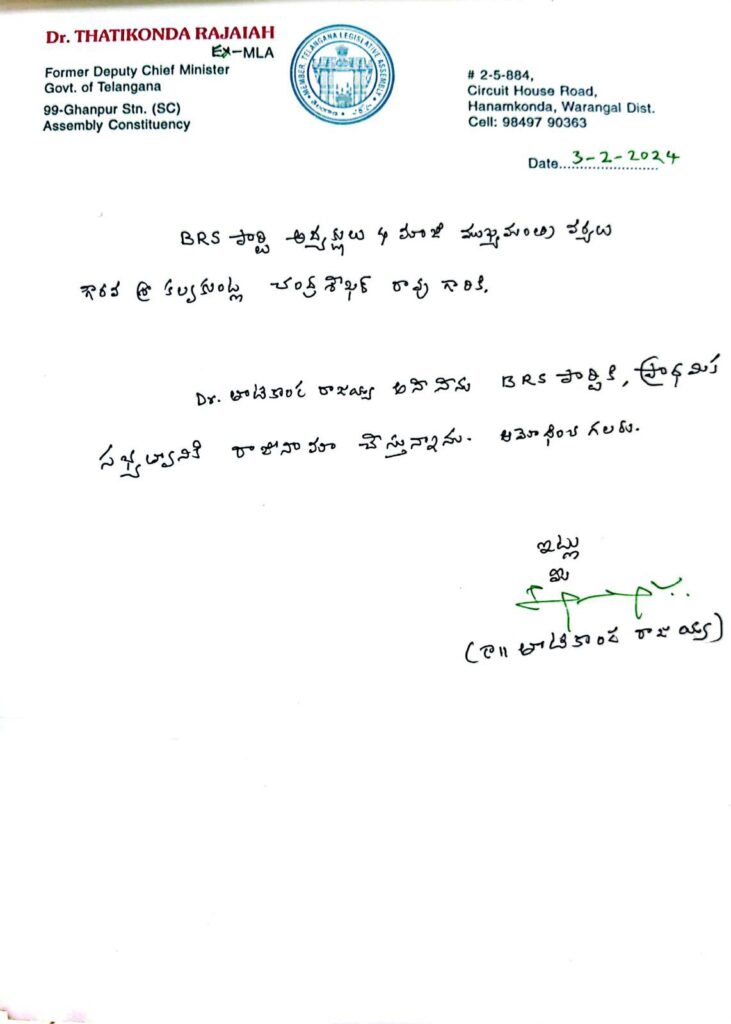 Dr. THATIKONDA RAJAIAH
Ex-MLA
Former Deputy Chief Minister
Govt. of Telangana
99-Ghanpur Stn. (SC)
Assembly Constituency
MEMBER, TELANGANA LEGISLATIVE ASSEMBLY
# 2-5-884,
Circuit House Road,
Hanamkonda, Warangal Dist.
Cell: 98497 90363
Date 3-2-2024
BRS పార్టీ అధ్యక్షులు & మాజీ ముఖ్యమంత్రి వర్యులు
గౌరవ శ్రీ కల్వకుంట్ల చంద్రశేఖర్ రావు గారికి,
Dr. తాటికొండ రాజయ్య అను నేను BRS పార్టీకి, ప్రాథమిక
సభ్యత్వానికి రాజీనామా చేస్తున్నాను. ఆమోదించ గలరు.
ఇట్లు
మీ
(డా॥ తాటికొండ రాజయ్య)